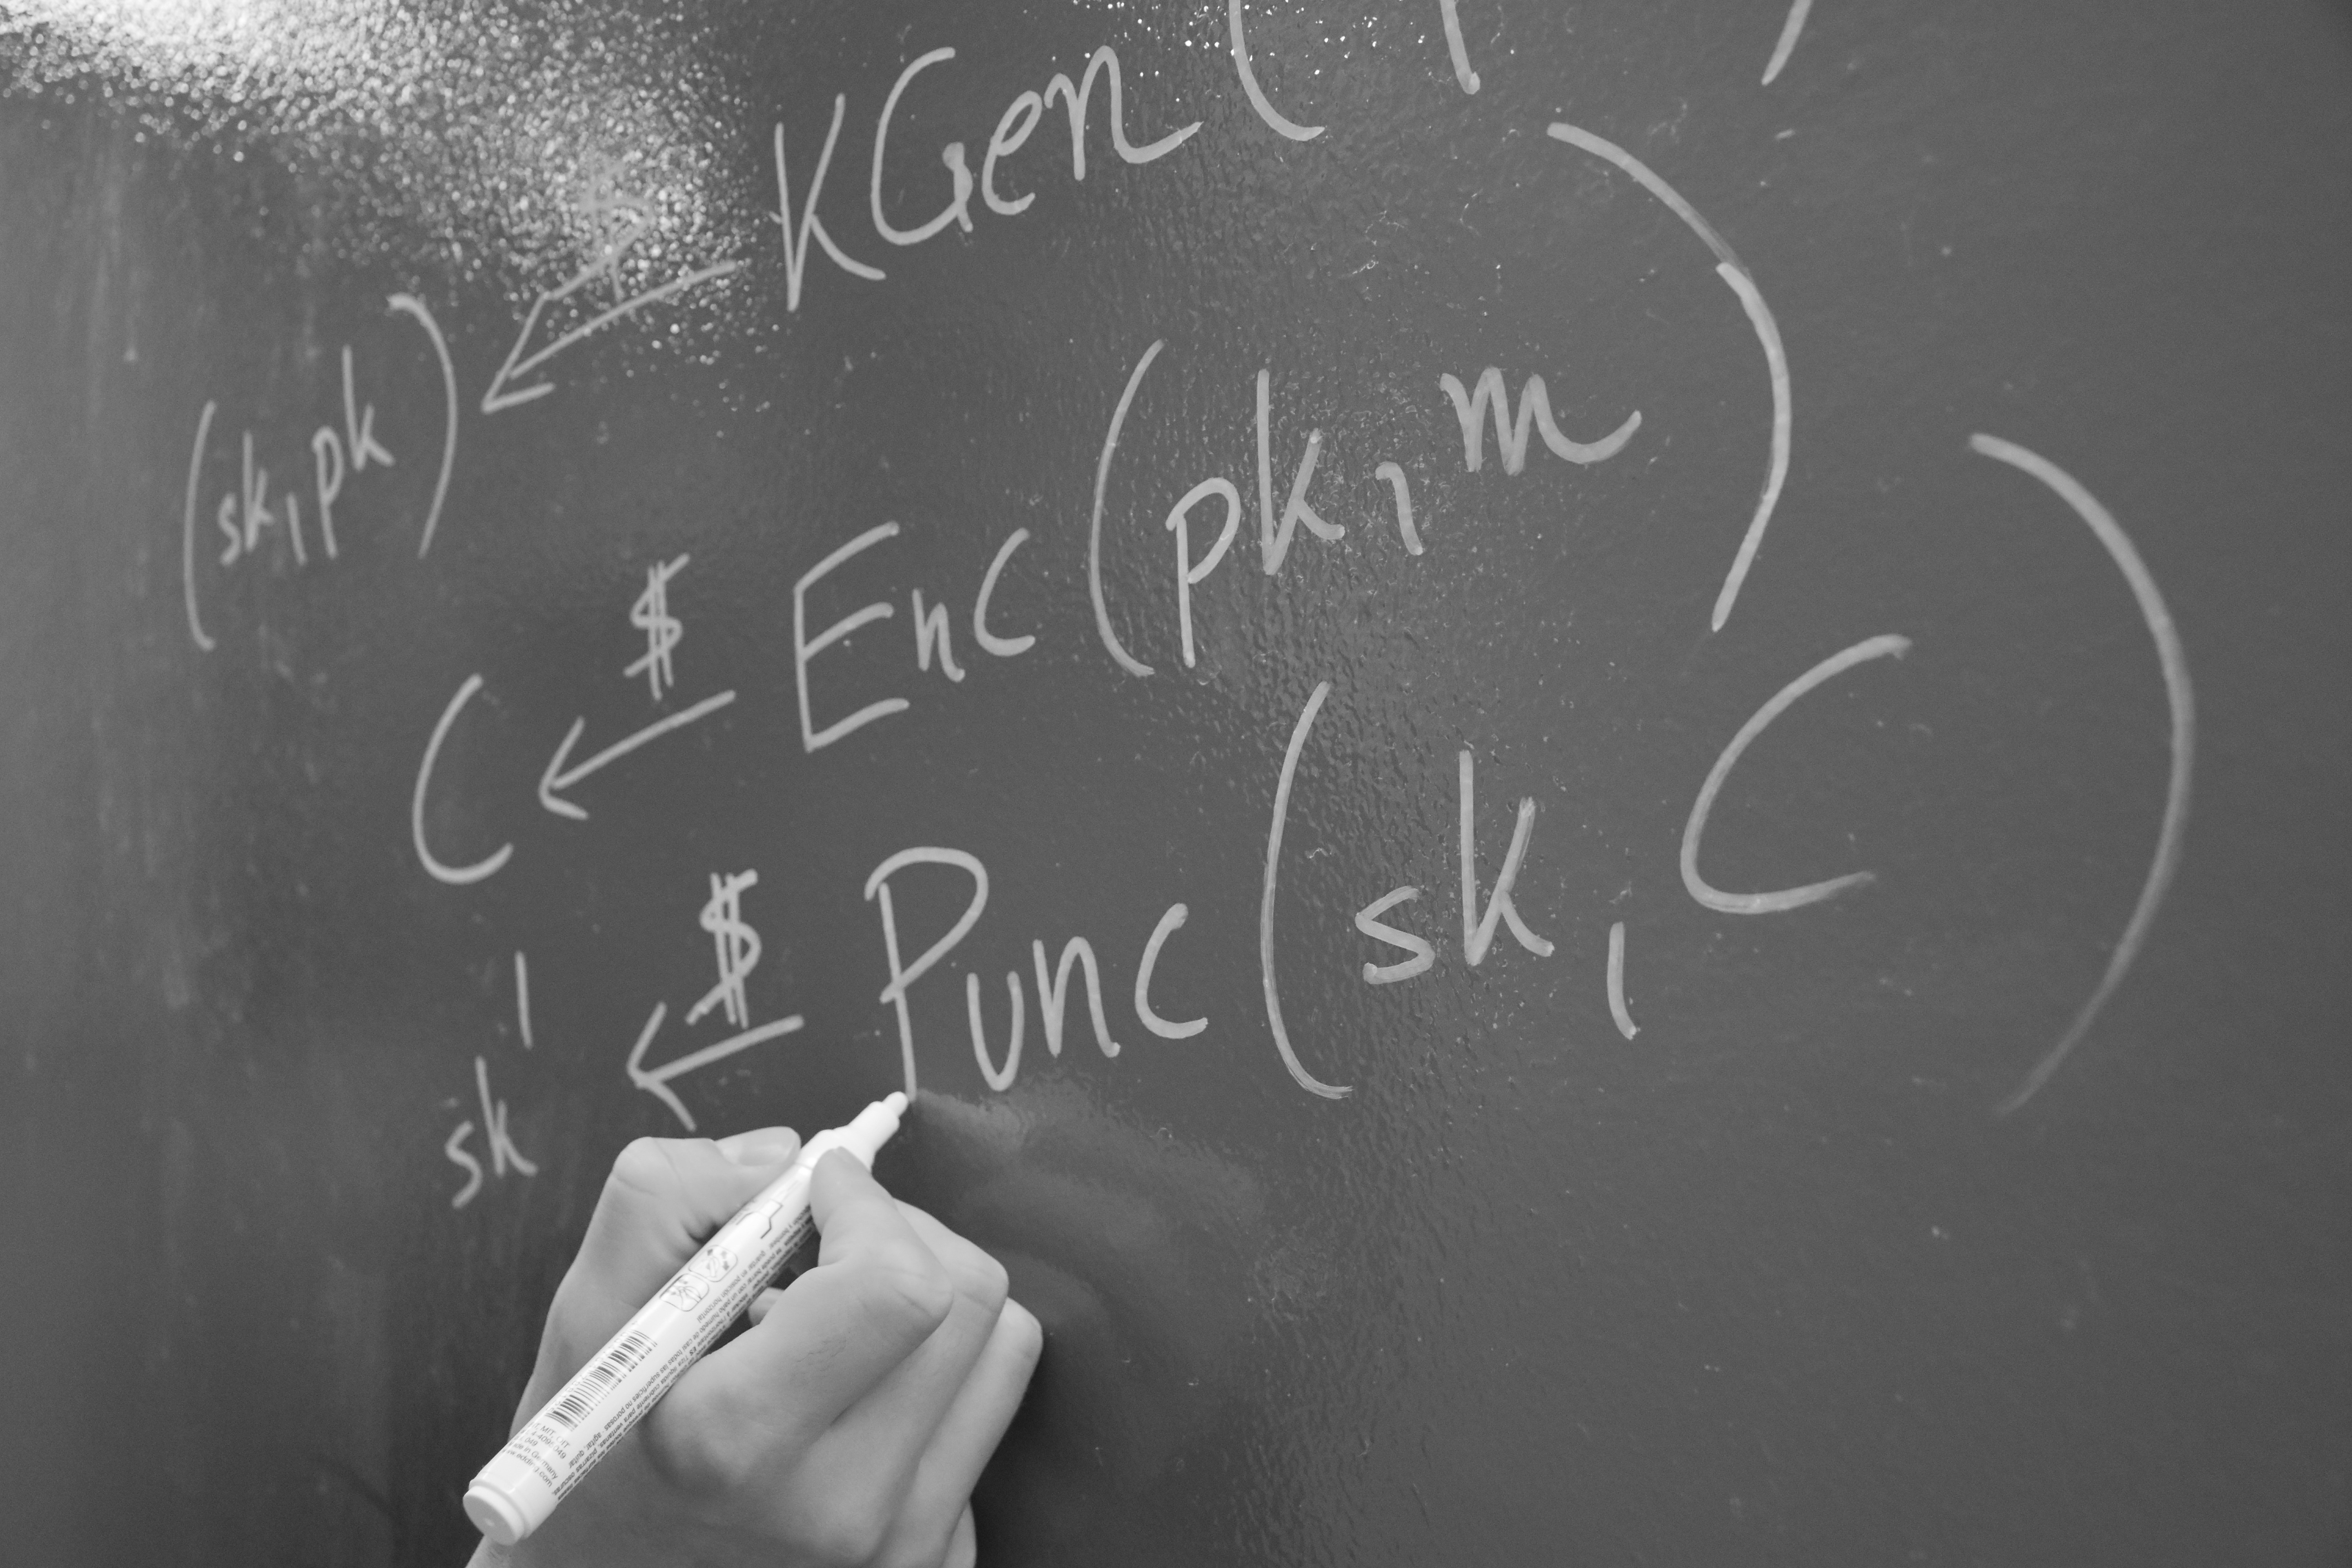 (sk, pk) ←$ KGen(
C ←$ Enc(pk, m)
sk' ←$ Punc(sk, C)